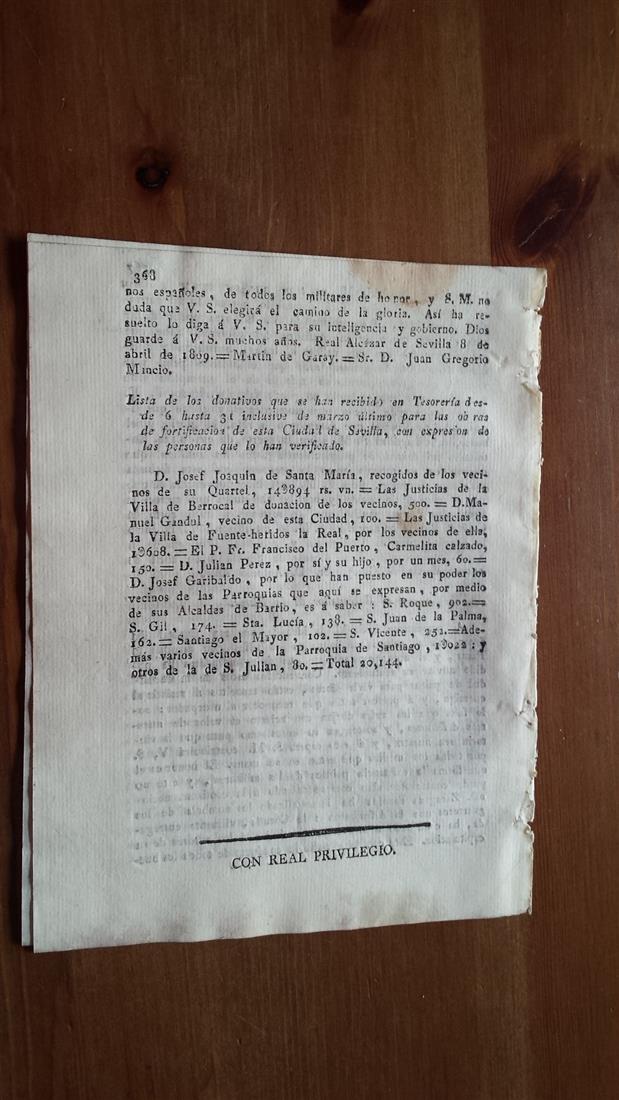 368
nos españoles, de todos los militares de honor, y S. M. no
duda que V. S. elegirá el camino de la gloria. Así ha re-
suelto lo diga á V. S. para su inteligencia y gobierno. Dios
guarde á V. S. muchos años. Real Alcázar de Sevilla 8 de
abril de 1809.=Martin de Garay.=Sr. D. Juan Gregorio
Mancio.
Lista de los donativos que se han recibido en Tesorería des-
de 6 hasta 31 inclusive de marzo último para las obras
de fortificacion de esta Ciudad de Sevilla, con expresion de
las personas que lo han verificado.
D. Josef Joaquin de Santa María, recogidos de los veci-
nos de su Quartel, 14⊕894 rs. vn. = Las Justicias de la
Villa de Berrocal de donacion de los vecinos, 500. = D. Ma-
nuel Gandul, vecino de esta Ciudad, 100. = Las Justicias de
la Villa de Fuente-heridos la Real, por los vecinos de ella,
1⊕608. = El P. Fr. Francisco del Puerto, Carmelita calzado,
150. = D. Julian Perez, por sí y su hijo, por un mes, 60. =
D. Josef Garibaldo, por lo que han puesto en su poder los
vecinos de las Parroquias que aquí se expresan, por medio
de sus Alcaldes de Barrio, es á saber: S. Roque, 902.=
S. Gil, 174. = Sta. Lucía, 138. = S. Juan de la Palma,
162. = Santiago el Mayor, 102. = S. Vicente, 252.=Ade-
más varios vecinos de la Parroquia de Santiago, 1⊕022: y
otros de la de S. Julian, 80. = Total 20,144.
CON REAL PRIVILEGIO.